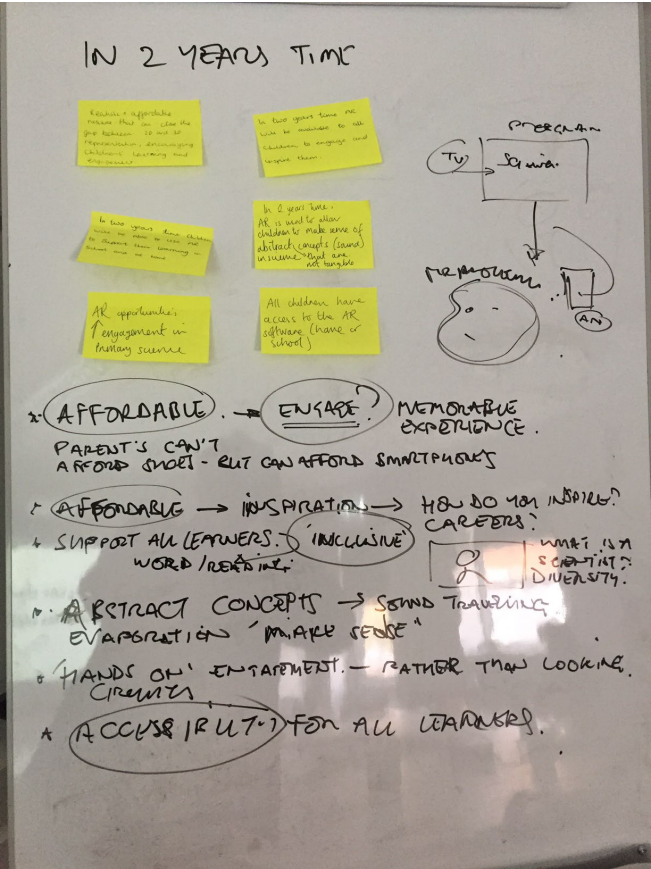 IN 2 YEARS TIME
Realistic + affordable
that can close the
gap between 2D and 3D
representation, encouraging
childrens learning and
engagement
In two years time MR
will be available to all
children to engage and
inspire them.
In two years time children
will be able to use MR
to support their learning in
school and at home
In 2 years time.
AR is used to allow
children to make sense of
abstract concepts (sound)
in science that are
not tangible
AR opportunities
↑ engagement in
primary science
All children have
access to the AR
software (home or
school)
PROGRAM
TV
AFFORDABLE. → ENGAGE? MEMORABLE
EXPERIENCE.
PARENT'S CAN'T
AFFORD SHOES - BUT CAN AFFORD SMARTPHONES
AFFORDABLE → INSPIRATION → HOW DO YOU INSPIRE?
CAREERS?
SUPPORT ALL LEARNERS. 'INCLUSIVE'
WORD/READING
WHAT IS A
SCIENTIST?
DIVERSITY?
ABSTRACT CONCEPTS → SOUND TRAVELLING
EVAPORATION "MAKE SENSE"
'HANDS ON' ENGAGEMENT. - RATHER THAN LOOKING.
CIRCUITS
ACCESSIBILITY FOR ALL LEARNERS.